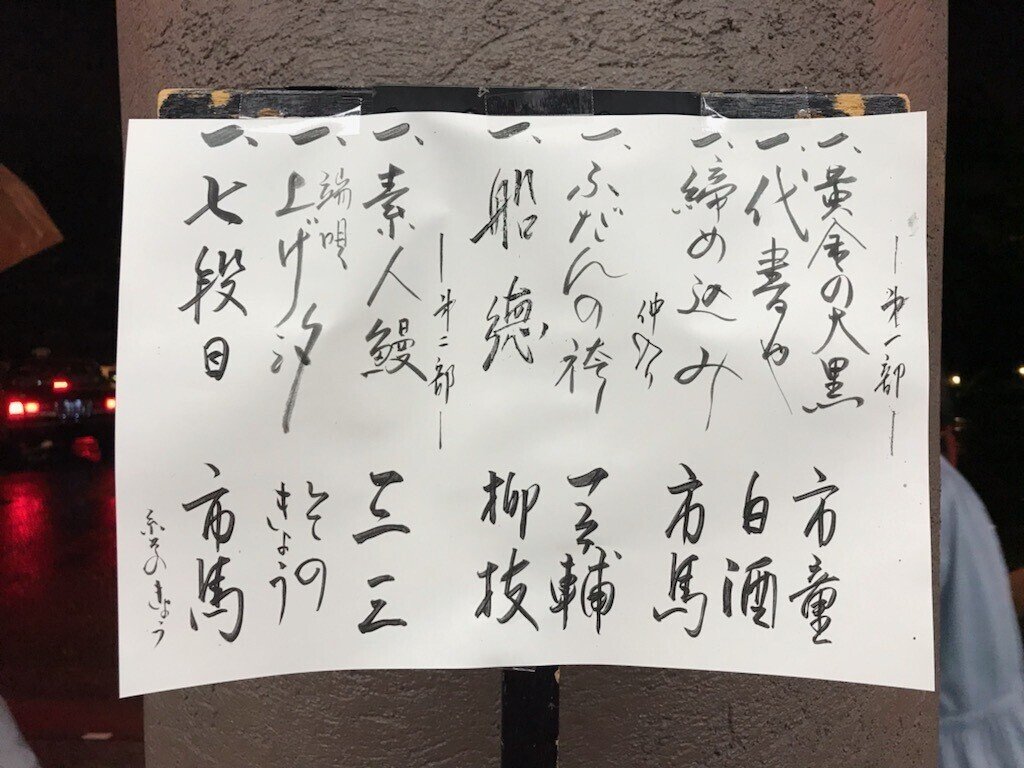 ―第一部―
一、黄金の大黒 市童
一、代書や 白酒
一、締め込み 市馬
仲入り
一、ふだんの袴 一之輔
一、船徳 柳枝
―第二部―
一、素人鰻 三三
一、端唄 上げ汐 そのきょう
一、七段目 市馬
糸そのきょう